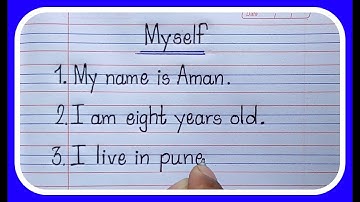 Date
Myself
1. My name is Aman.
2. I am eight years old.
3. I live in pune